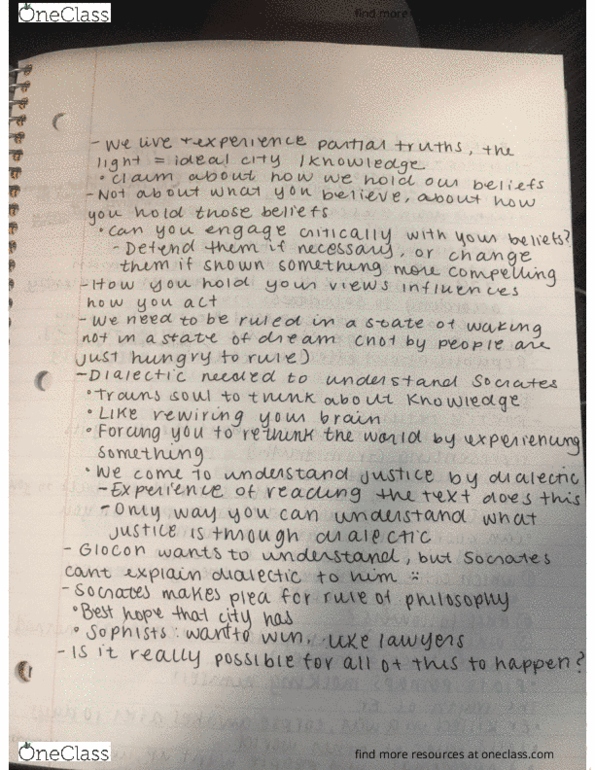 OneClass
find more
- We live + experience partial truths, the
light = ideal city / knowledge
• claim about how we hold our beliefs
- Not about what you believe, about how
you hold those beliefs
• can you engage critically with your beliefs?
- Defend them if necessary, or change
them if shown something more compelling
- How you hold your views influences
how you act
- We need to be ruled in a state of waking
not in a state of dream (not by people are
just hungry to rule)
- Dialectic needed to understand Socrates
• Trains soul to think about knowledge
• Like rewiring your brain
• Forcing you to rethink the world by experiencing
something
• We come to understand justice by dialectic
- Experience of reading the text does this
- Only way you can understand what
justice is through dialectic
- Glocon wants to understand, but Socrates
cant explain dialectic to him
- Socrates makes plea for rule of philosophy
• Best hope that city has
• Sophists: want to win, like lawyers
- Is it really possible for all of this to happen?
OneClass
find more resources at oneclass.com